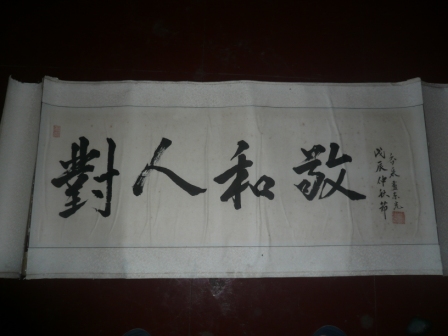 對人和敬
戊辰仲秋節